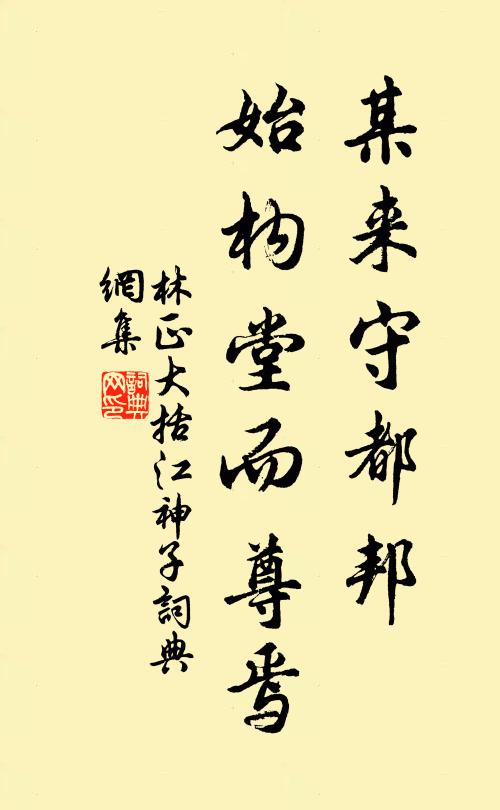 某来守都邦
始构堂而尊焉
林正大括江神子詞典
網集
詞典
网印